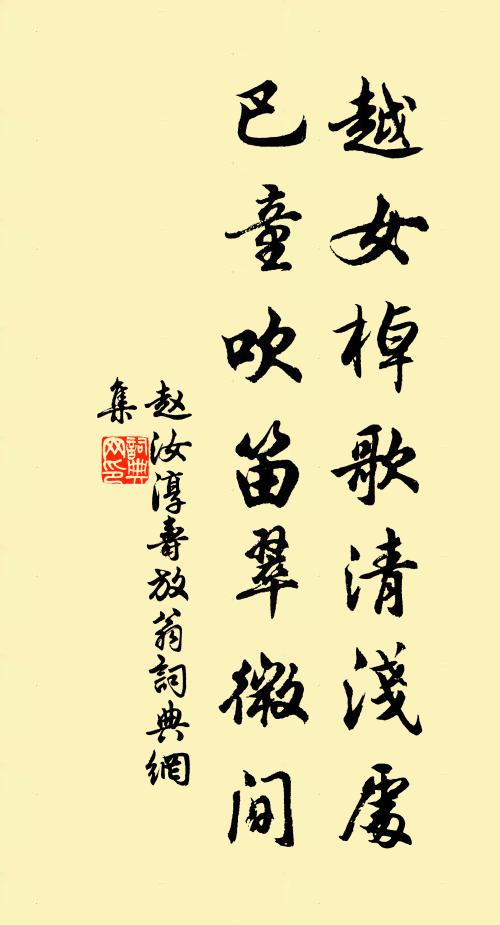 越女棹歌清淺處
巴童吹笛翠微间
赵汝淳壽放翁詞典網
集
詞典
网印